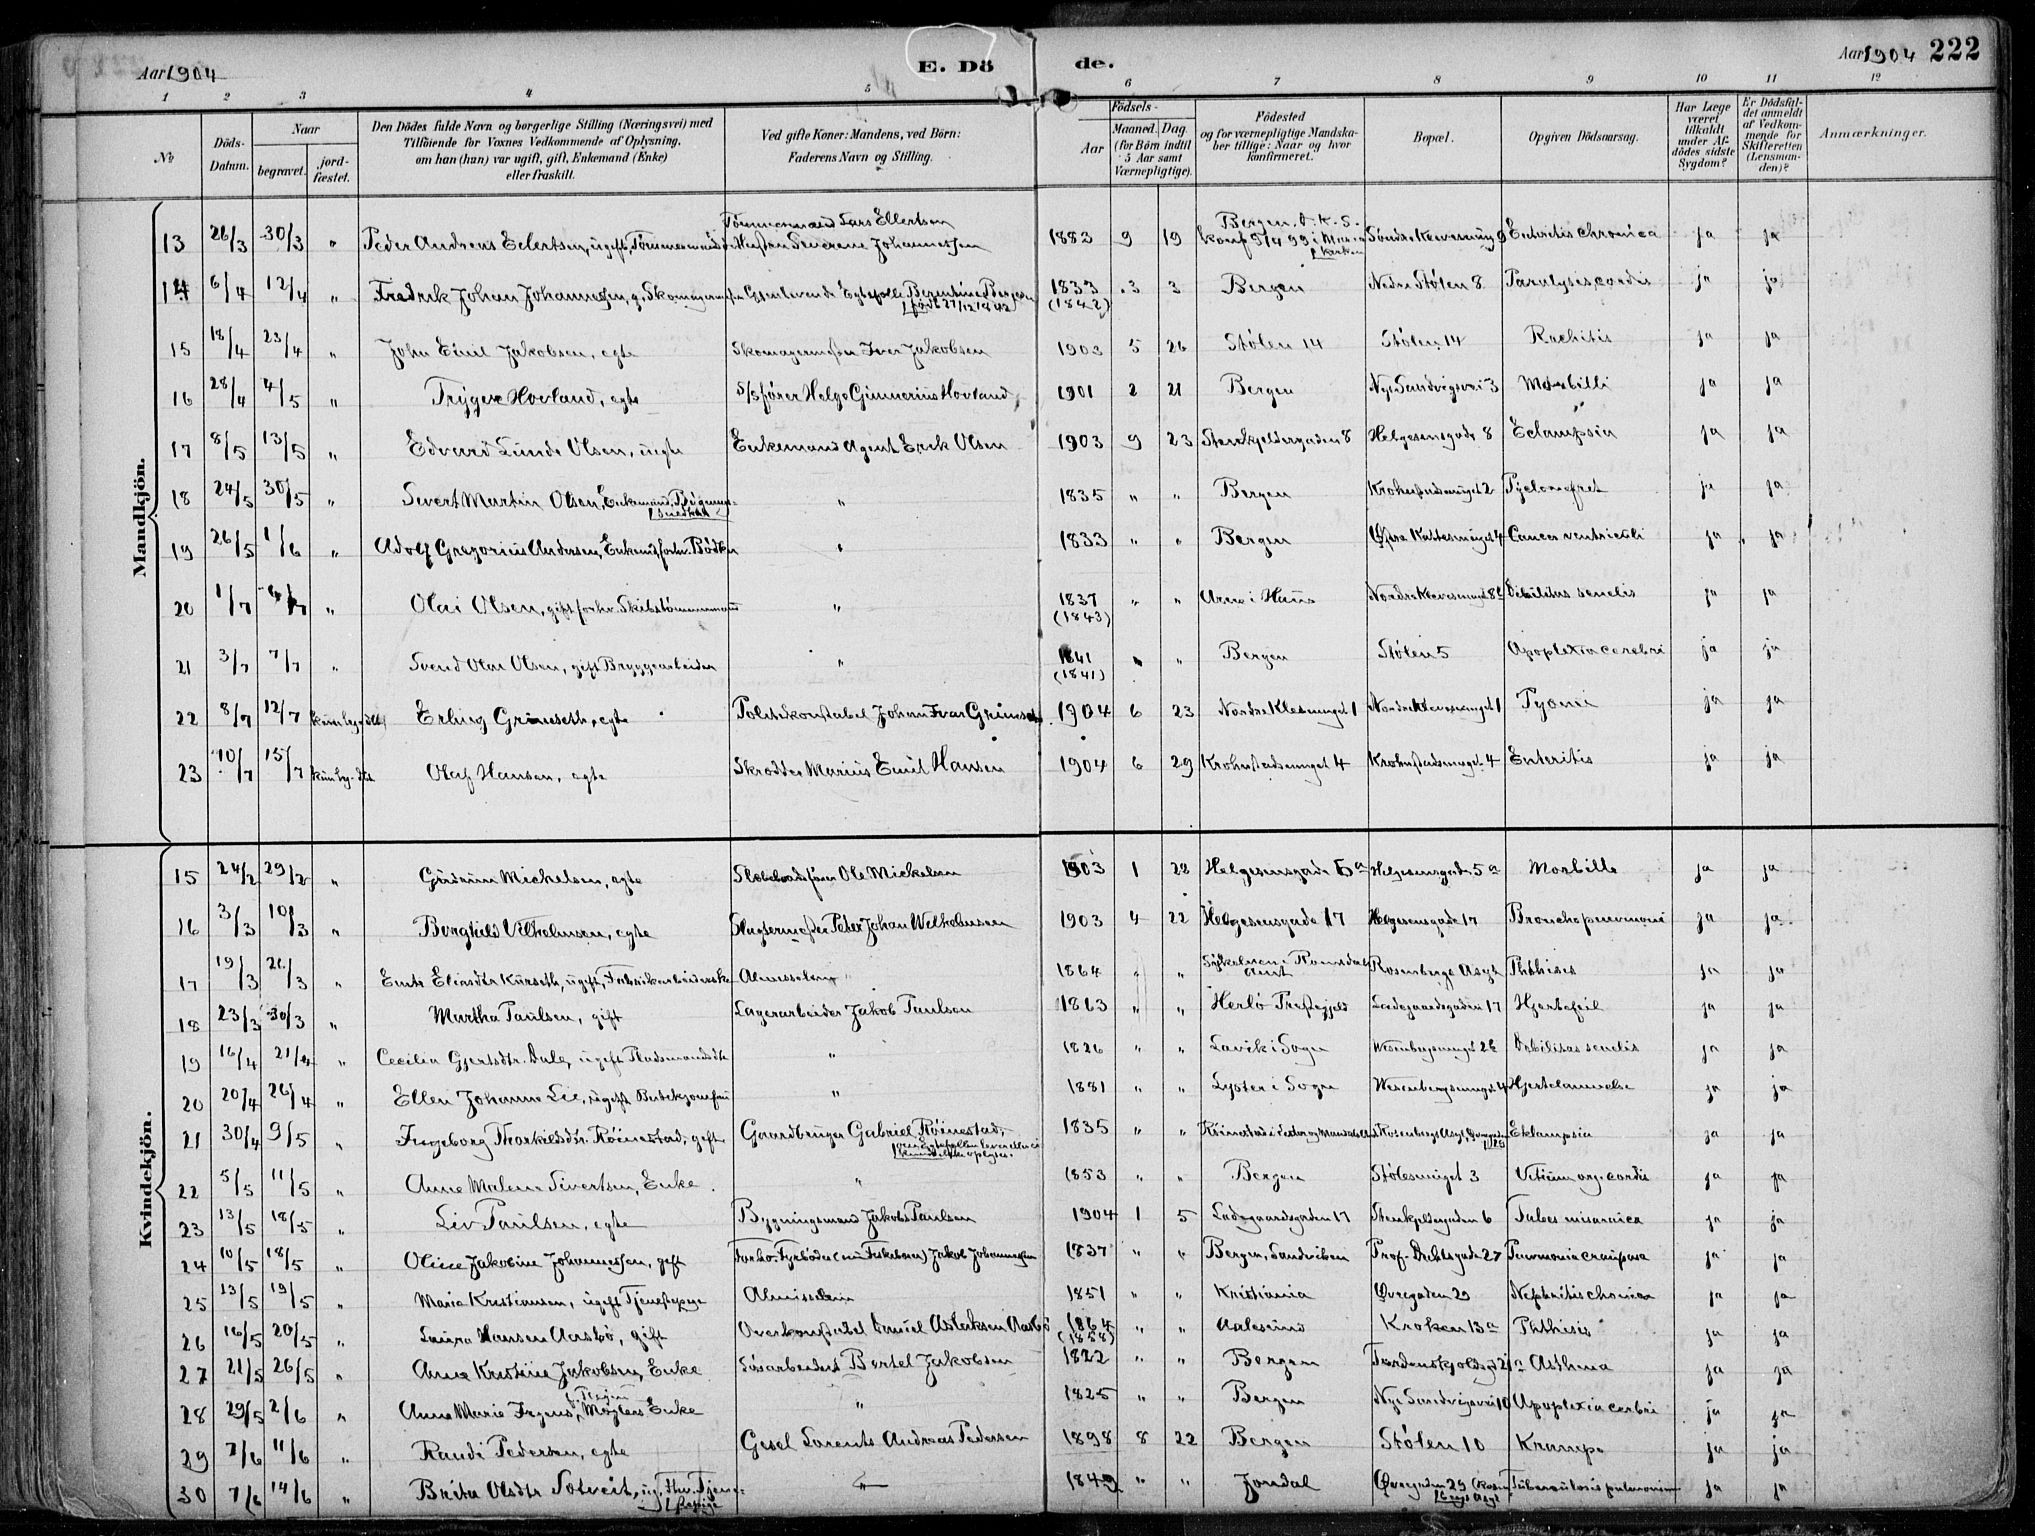 Aar 1904 E. Dö de. Aar 1904 222
1 2 3 4 5 6 7 8 9 10 11 12
No
Döds-Datum.
Naar begravet. jordfæstet.
Den Dödes fulde Navn og borgerlige Stilling (Næringsvei) med Tilföiende for Voxnes Vedkommende af Oplysning, om han (hun) var ugift, gift, Enkemand (Enke) eller fraskilt.
Ved gifte Koner: Mandens, ved Børn: Faderens Navn og Stilling.
Födsels- Aar Maaned. Dag. (for Børn indtil 5 Aar samt Værnepligtige).
Födested og for værnepligtige Mandskaber tillige: Naar og hvor konfirmeret.
Bopæl.
Opgiven Dödsaarsag.
Har Læge været tilkaldt under Afdödes sidste Sygdom?
Er Dödsfaldet anmeldt af Vedkommende for Skifteretten (Lensmanden)?
Anmærkninger.
Mandkjön.
13 26/3 30/3 " Peder Andreas Eilertsen, ugift, Tømmermand Tømmermand Lars Ellertsen Hustru Severine Johannessen 1883 9 19 Bergen. D. K. S. konf 9/4 99 i Mariakirken Søndre Kleversmug 9 Enteritis chronica ja ja
14 6/4 12/4 " Fredrik Johan Johannesen, g. Skomagermester Gjenlevende Egtefælle Berentine Bergesen født 27/12 1842 1833 (1842) 3 3 Bergen Nedre Stølen 8 Paralysis cordis ja ja
15 18/4 23/4 " John Emil Jakobsen, egte Skomagermester Iver Jakobsen 1903 5 26 Stølen 14 Stølen 14 Rachitis ja ja
16 28/4 4/5 " Trygve Hovland, egte S/S fører Helge Gunnerius Hovland 1901 2 21 Bergen Nye Sandvigsvei 3 Morbilli ja ja
17 8/5 13/5 " Edvard Lunde Olsen, uegte Enkemand Agent Erik Olsen 1903 9 23 Stenkjeldergaden 8 Helgesensgade 8 Eclampsia ja ja
18 24/5 30/5 " Sivert Martin Olsen, Enkemand, Bygningssnedker " 1835 " " Bergen Krohnstadsmuget 2 Pyelonefret ja ja
19 26/5 1/6 " Adolf Gregorius Andersen, Enkemd, forhv. Bødker " 1833 " " Bergen Øvre Kaltesmuget 4 Cancer ventriculi ja ja
20 1/7 /7 " Olai Olsen, gift forhv. Skibstømmermand " 1837 (1843) " " Arne i Haus Nordre Kleversmuget 8b Debilitas senilis ja ja
21 3/7 7/7 " Svend Olai Olsen, gift Bryggearbeider " 1841 (1841) " " Bergen Stølen 5 Apoplexia cerebri ja ja
22 8/7 12/7 Erling Grimseth, egte Politikonstabel Johan Ivar Grimseth 1904 6 23 Nordre Klesmuget 1 Nordre Kleversmuget 1 Pyomi ja ja
23 10/7 15/7 Olaf Hansen, egte Skrædder Marius Emil Hansen 1904 6 29 Krohnstadsmuget 4 Krohnstadsmuget 4 Enteritis ja ja
Kvindekjön.
15 24/2 29/2 " Gudrun Mickelsen, egte Slæbebaadsfører Ole Mickelsen 1903 1 22 Helgesensgade 5a Helgesensgade 5a Morbille ja ja
16 3/3 10/3 " Borghild Vilhelmsen, egte Slagtermester Peter Johan Wilhelmsen 1903 4 22 Helgesensgade 17 Helgesensgade 17 Bronchopneumoni ja ja
17 19/3 26/3 " Elensdtr Kurseth, ugift, Fabrikarbeiderske Almisselem " 1864 " " Romsdals Amt Rosenbergs Asyl Phthisis ja ja
18 23/3 30/3 " Martha Paulsen, gift Lagerarbeider Jakob Paulsen 1863 " " Herlø Prestegjeld Ladegaardsgaden 17 Hjertefeil ja ja
19 16/4 21/4 " Cecilia Gjertsdtr. Dale, ugift Pladsmandsdtr " 1826 " " Lavik i Sogn Wesenbergsmuget 2b Debilitas senilis ja ja
20 20/4 26/4 " Ellen Johanne Lie, ugift Butikjomfru " 1881 " " Lyster i Sogn Wesenbergsmuget 4 Hjertelammelse ja ja
21 30/4 9/5 " Ingeborg Thorkildsdtr. Røinestad, gift Gaardbruger Gabriel Røinestad, om Egtefællen lever eller ei kunde ikke oplyses. 1835 " " Røinestad i Lister og Mandals Amt Rosenbergs Asyl, Øvregaden 29 Eklampsia ja ja
22 5/5 11/5 " Anne Malene Sivertsen, Enke. " 1853 " " Bergen Stølesmuget 3 Vitium org. cordis ja ja
23 13/5 18/5 " Liv Paulsen, egte Bygningsmand Jakob Paulsen 1904 1 5 Ladegaardsgaden 17 Stenkjeldergaden 6 Tabes misaraica ja ja
24 10/5 18/5 " Oline Jakobine Johannessen, gift Forhv. Fyrbøder (nu Fiskebærer) Jakob Johannessen 1837 " " Bergen, Sandviken Prof. Dahlsgade 27 Pneumonia crouposa ja ja
25 13/5 19/5 " Maria Kristiansen, ugift Tjenestepige Almisselem 1851 " " Kristiania Øvregaden 29 Nephritis chonica ja ja
26 16/5 20/5 " Laura Hansen Aarbø, gift Overkonstabel Daniel Aslaksen Aarbø 1864 (1858) " " Aalesund Kroken 13a Phthisis ja ja
27 21/5 26/5 " Anne Kristine Jakobsen, Enke Løsarbeider Bertel Jakobsen 1822 " " Bergen Tordenskjoldsgd 21a Asthma ja ja
28 29/5 2/6 " Anne Marie Irgens, Møglers Enke " 1825 " " Bergen Nye Sandvigsvei 10 Apoplexia cerbri ja ja
29 7/6 11/6 " Randi Pedersen, egte Gesel Lorents Andreas Pedersen 1898 8 22 Bergen Stølen 10 Krampe ja ja
30 7/6 14/6 " Brita Olsdtr Sotveit, ug. Fhv. Tjenestepige " 1849 " " Jondal Øvregaden 29 (Rosenbergs Asyl Tuberculosis pulmonum ja ja